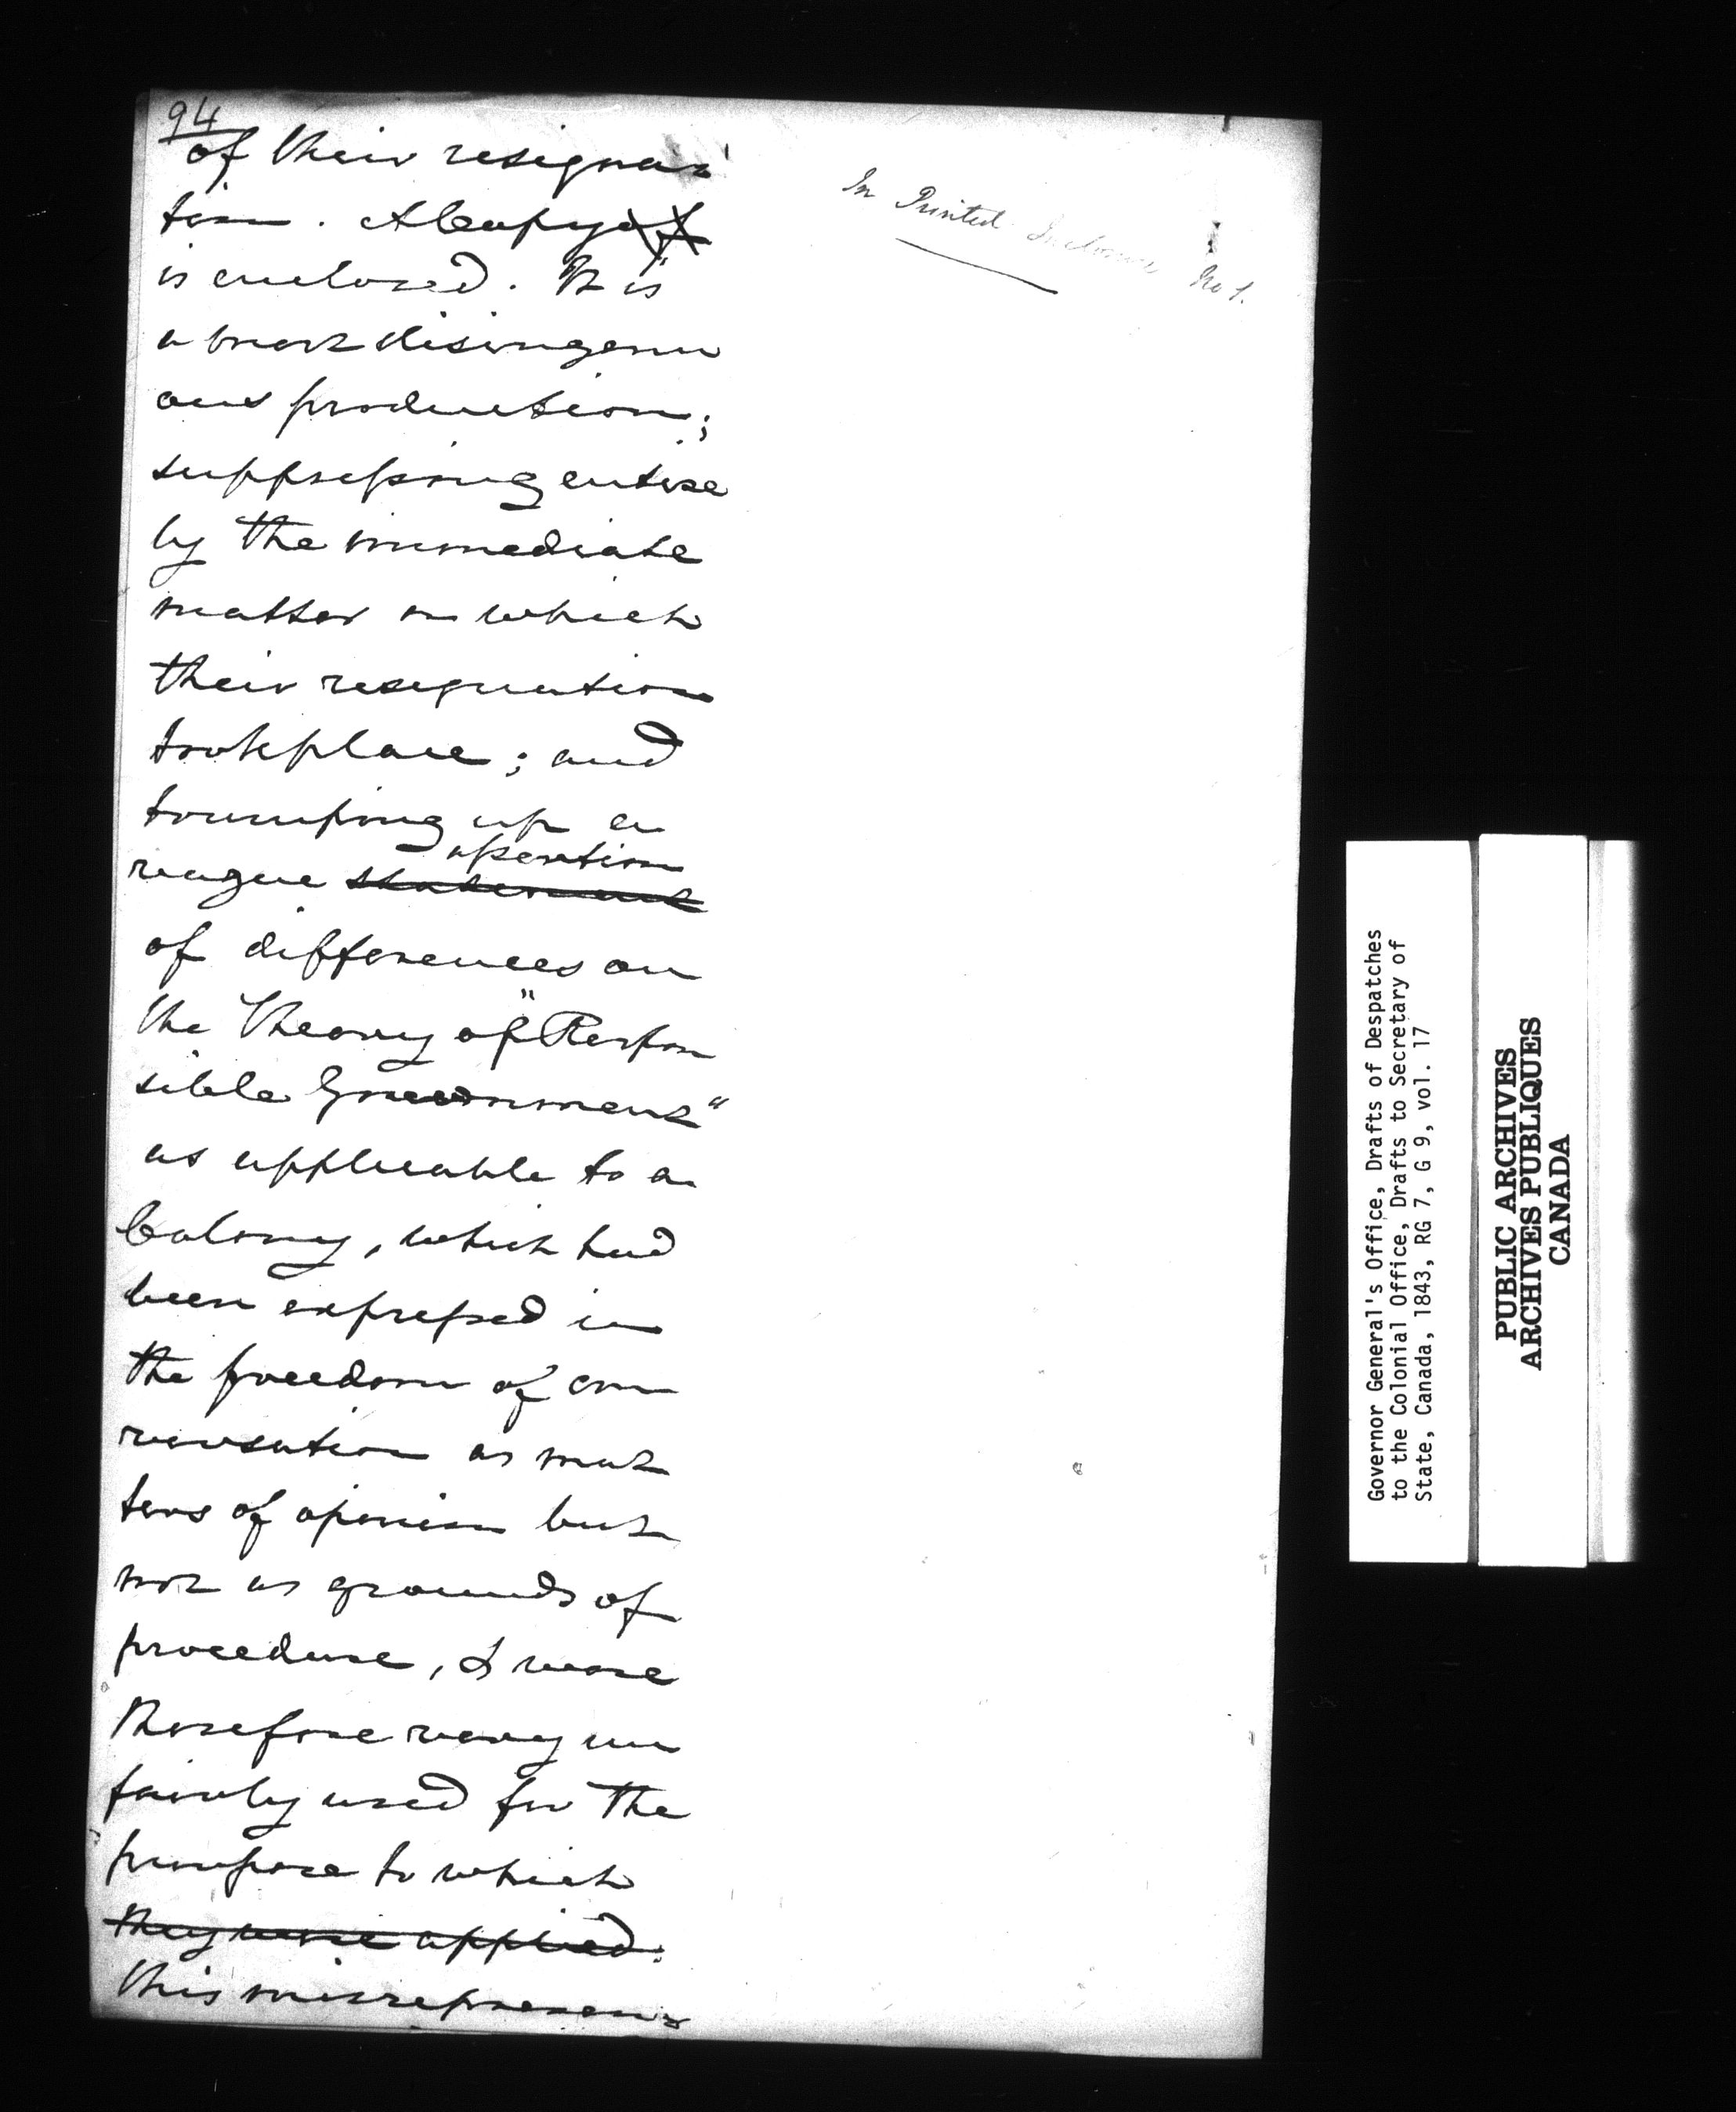 94
of their resigna-
tion. A Copy of it
is enclosed. It is
a most disingenu
ous production;
suppressing entire
ly the immediate
matter on which
their resignation
took place; and
trumping up a
assertion
vague statement
of differences on
the Theory of "Respon
sible Government"
as applicable to a
Colony, which had
been expressed in
the freedom of con
versation as mat
ters of opinion but
not as grounds of
procedure, & were
therefore very un
fairly used for the
purpose to which
they were applied.
this misrepresen-
In Printed Inclosure No 1.
Governor General's Office, Drafts of Despatches
to the Colonial Office, Drafts to Secretary of
State, Canada, 1843, RG 7, G 9, vol. 17
PUBLIC ARCHIVES
ARCHIVES PUBLIQUES
CANADA